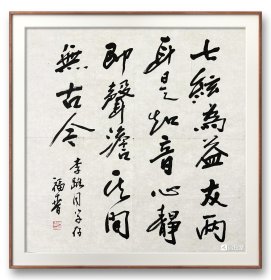 七絃為益友兩
耳是知音心靜
即聲澹其間
無古今
李同學存
福